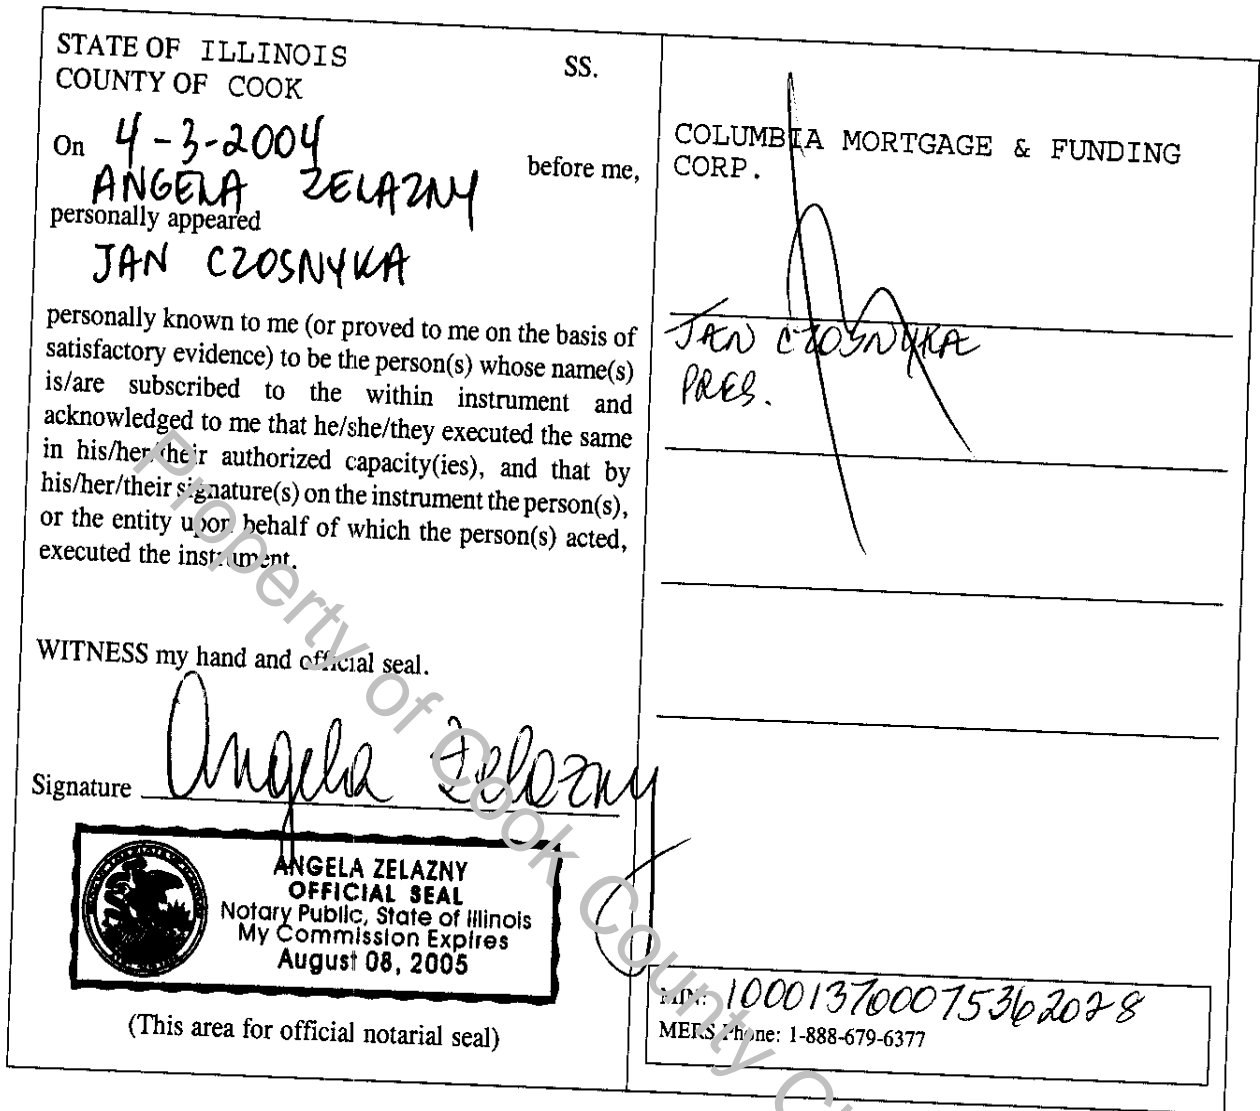 STATE OF ILLINOIS SS.
COUNTY OF COOK
On 4-3-2004 before me,
ANGELA ZELAZNY
personally appeared
JAN CZOSNYKA
personally known to me (or proved to me on the basis of
satisfactory evidence) to be the person(s) whose name(s)
is/are subscribed to the within instrument and
acknowledged to me that he/she/they executed the same
in his/her/their authorized capacity(ies), and that by
his/her/their signature(s) on the instrument the person(s),
or the entity upon behalf of which the person(s) acted,
executed the instrument.
WITNESS my hand and official seal.
Signature Angela Zelazny
ANGELA ZELAZNY
OFFICIAL SEAL
Notary Public, State of Illinois
My Commission Expires
August 08, 2005
(This area for official notarial seal)
COLUMBIA MORTGAGE & FUNDING
CORP.
JAN CZOSNYKA
PRES.
MIN: 100013700075362028
MERS Phone: 1-888-679-6377
Property of Cook County